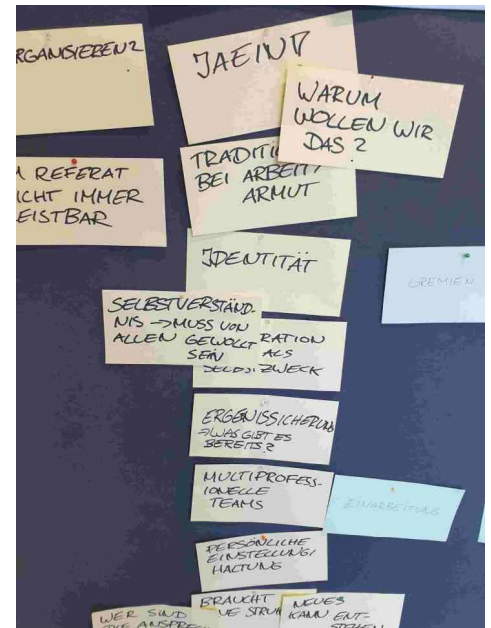 RGANISIEREN?
JAEIND
WARUM
WOLLEN WIR
DAS?
REFERAT
ICHT IMMER
EISTBAR
TRADITI
BEI ARBEIT/
ARMUT
IDENTITÄT
GREMIEN
SELBSTVERSTÄND-
NIS → MUSS VON
ALLEN GEWOLLT
SEIN
RATION
ALS
ZWECK
ERGENISSICHERUNG
→ WAS GIBT ES
BEREITS?
MULTIPROFESS-
IONELLE
TEAMS
EINARBEITUNG
PERSÖNLICHE
EINSTELLUNG/
HALTUNG
BRAUCHT
UE STRUK
NEUES
KANN ENT-
STEHEN
WER SIND
DIE ANSPRE